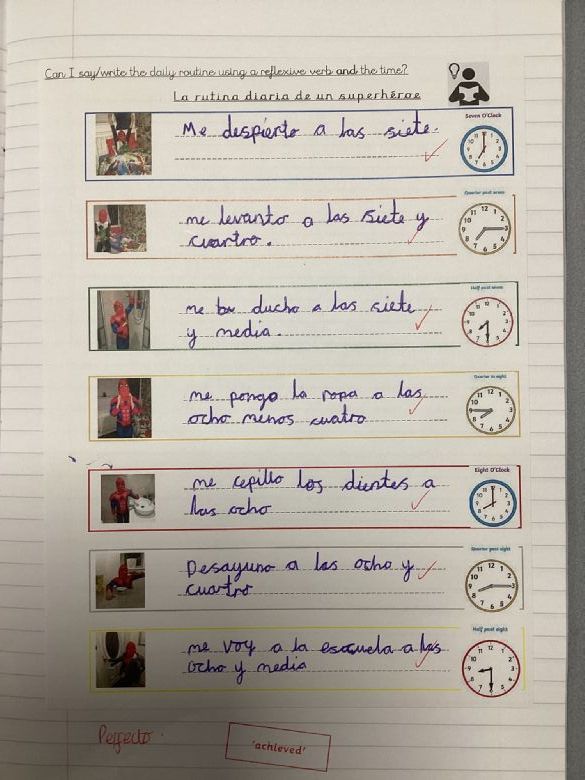 Can I say/write the daily routine using a reflexive verb and the time?
La rutina diaria de un superhéroe
Me despierto a las siete.
Seven O'Clock
me levanto a las siete y
cuartro.
Quarter past seven
me ducho a las siete
y media.
Half past seven
me pongo la ropa a las
ocho menos cuatro
Quarter to eight
me cepillo los dientes a
las ocho
Eight O'Clock
Desayuno a las ocho y
cuartro
Quarter past eight
me voy a la escuela a las
ocho y media
Half past eight
Perfecto.
'achieved'